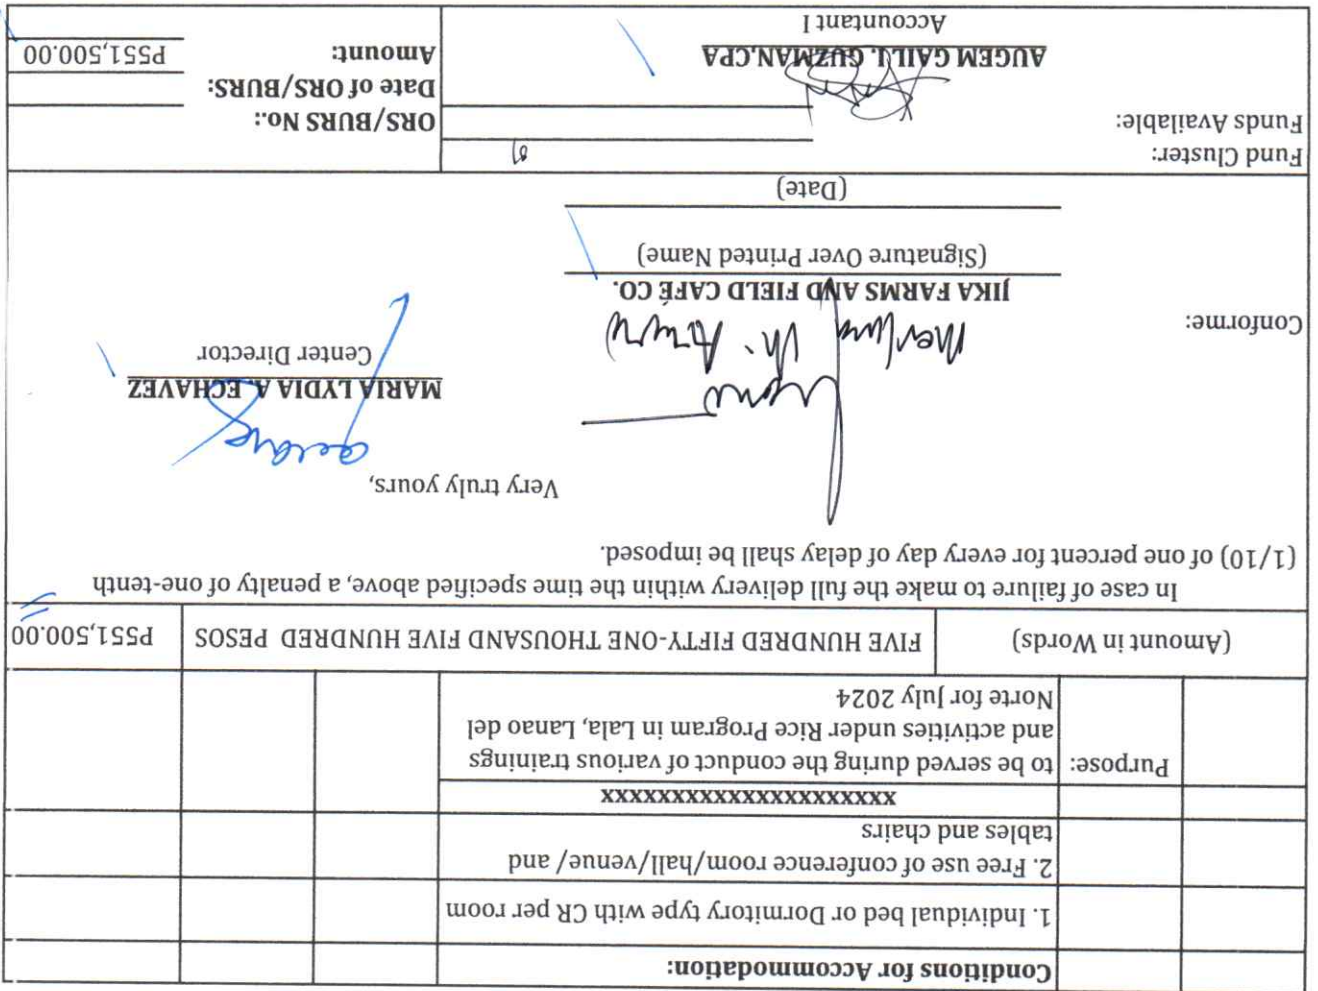 Conditions for Accommodation:
1. Individual bed or Dormitory type with CR per room
2. Free use of conference room/hall/venue/ and
tables and chairs
xxxxxxxxxxxxxxxxxxxxx
Purpose: to be served during the conduct of various trainings
and activities under Rice Program in Lala, Lanao del
Norte for July 2024
(Amount in Words) FIVE HUNDRED FIFTY-ONE THOUSAND FIVE HUNDRED PESOS P551,500.00
In case of failure to make the full delivery within the time specified above, a penalty of one-tenth
(1/10) of one percent for every day of delay shall be imposed.
Very truly yours,
MARIA LYDIA A. ECHAVEZ
Center Director
Conforme:
JIKA FARMS AND FIELD CAFÉ CO.
(Signature Over Printed Name)
(Date)
Fund Cluster: 01
Funds Available:
AUGEM GAIL J. GUZMAN.CPA
Accountant I
ORS/BURS No.:
Date of ORS/BURS:
Amount: P551,500.00